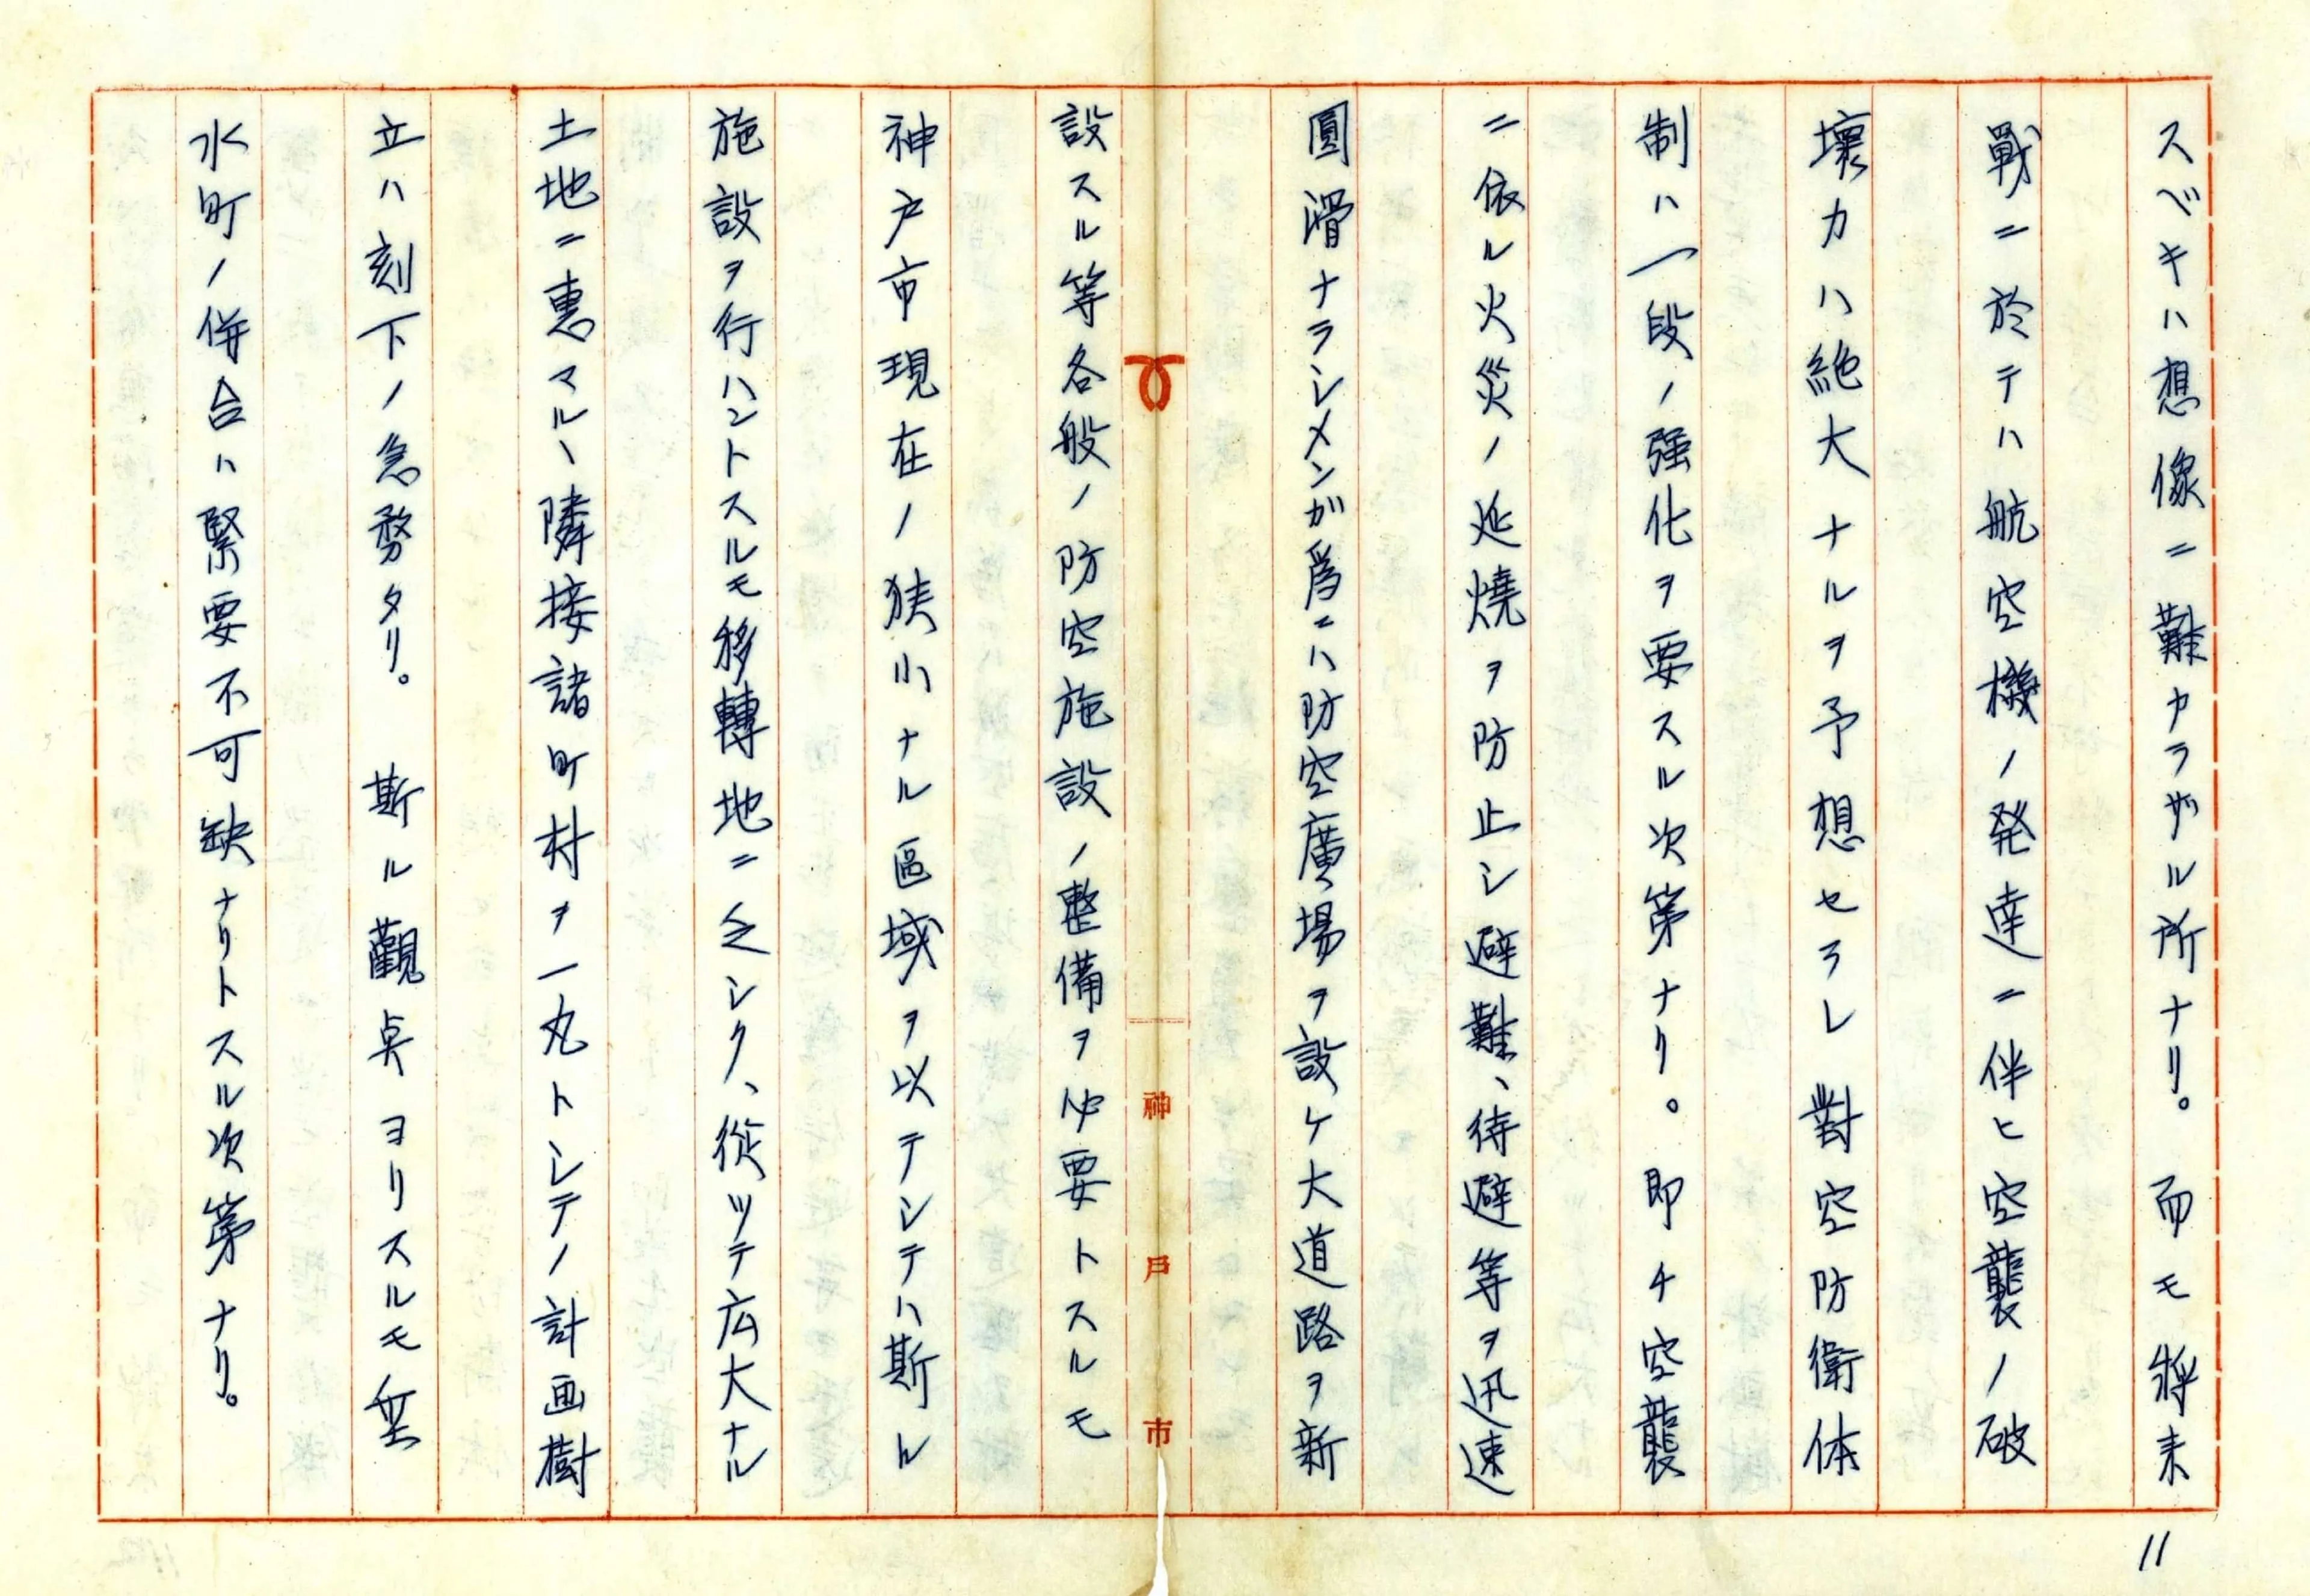 スベキハ想像ニ難カラザル所ナリ。而モ将来
戰ニ於テハ航空機ノ発達ニ伴ヒ空襲ノ破
壊力ハ絶大ナルヲ予想セラレ對空防衛体
制ハ一段ノ強化ヲ要スル次第ナリ。即チ空襲
ニ依ル火災ノ延燒ヲ防止シ避難、待避等ヲ迅速
圓滑ナラシメンガ爲ニハ防空廣場ヲ設ケ大道路ヲ新
設スル等各般ノ防空施設ノ整備ヲ必要トスルモ
神戸市現在ノ狭小ナル區域ヲ以テシテハ斯ル
施設ヲ行ハントスルモ移轉地ニ乏シク、從ツテ広大ナル
土地ニ惠マルヽ隣接諸町村ヲ一丸トシテノ計画樹
立ハ刻下ノ急務タリ。斯ル觀点ヨリスルモ垂
水町ノ併合ハ緊要不可缺ナリトスル次第ナリ。
神戸市
11